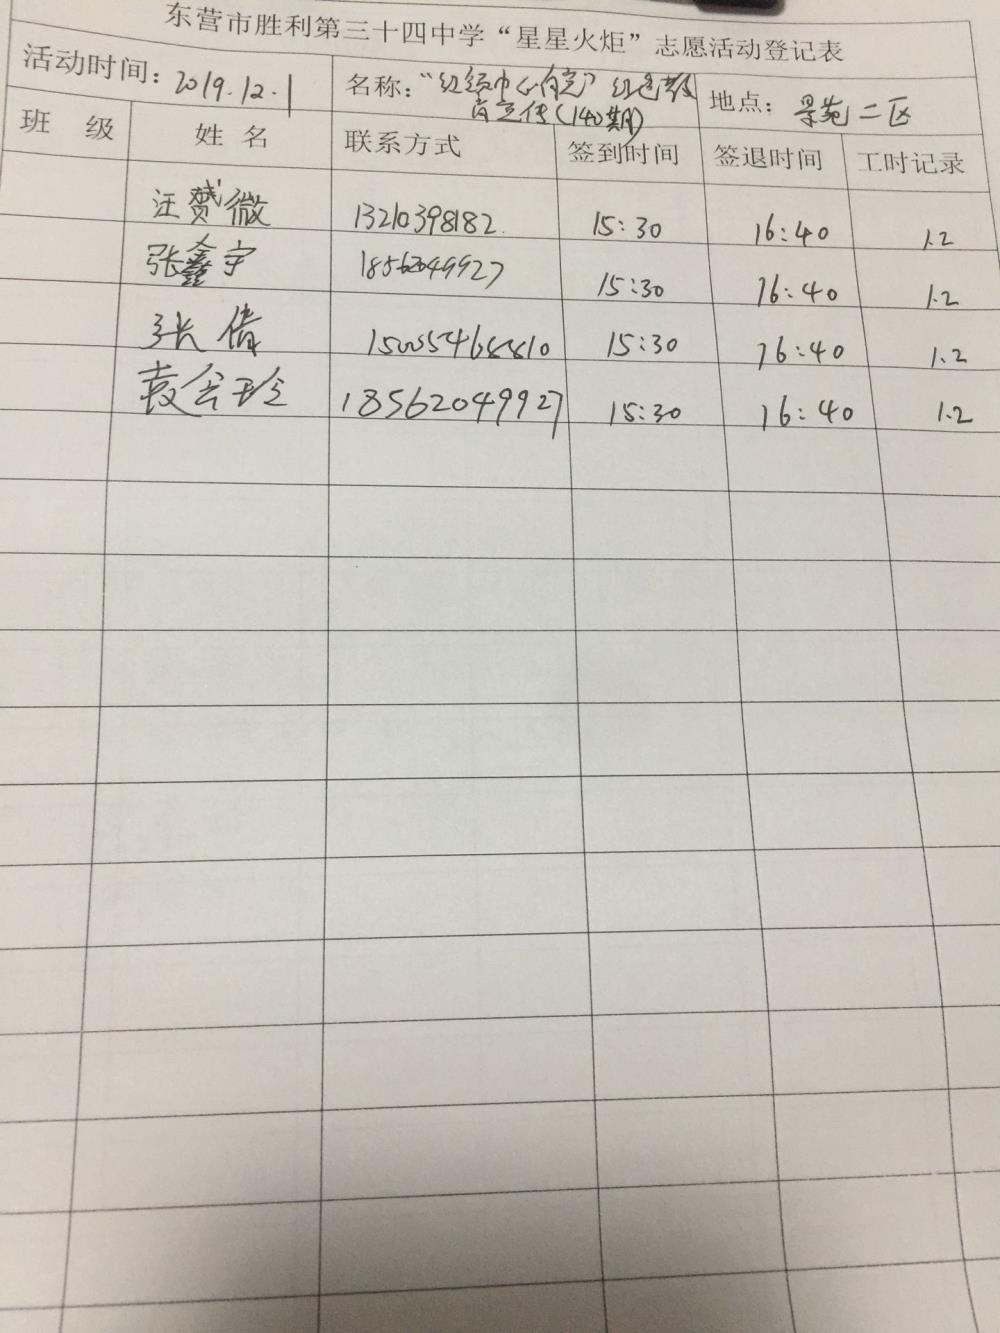 东营市胜利第三十四中学“星星火炬”志愿活动登记表
活动时间：2019.12.1 名称：“红领巾心向党”红色教 地点：景苑二区
育宣传（140期）
班 级 姓 名 联系方式 签到时间 签退时间 工时记录
汪赟微 13210398182 15:30 16:40 1.2
张鑫宇 18562049927 15:30 16:40 1.2
张倩 15:30 16:40 1.2
袁会珍 18562049927 15:30 16:40 1.2